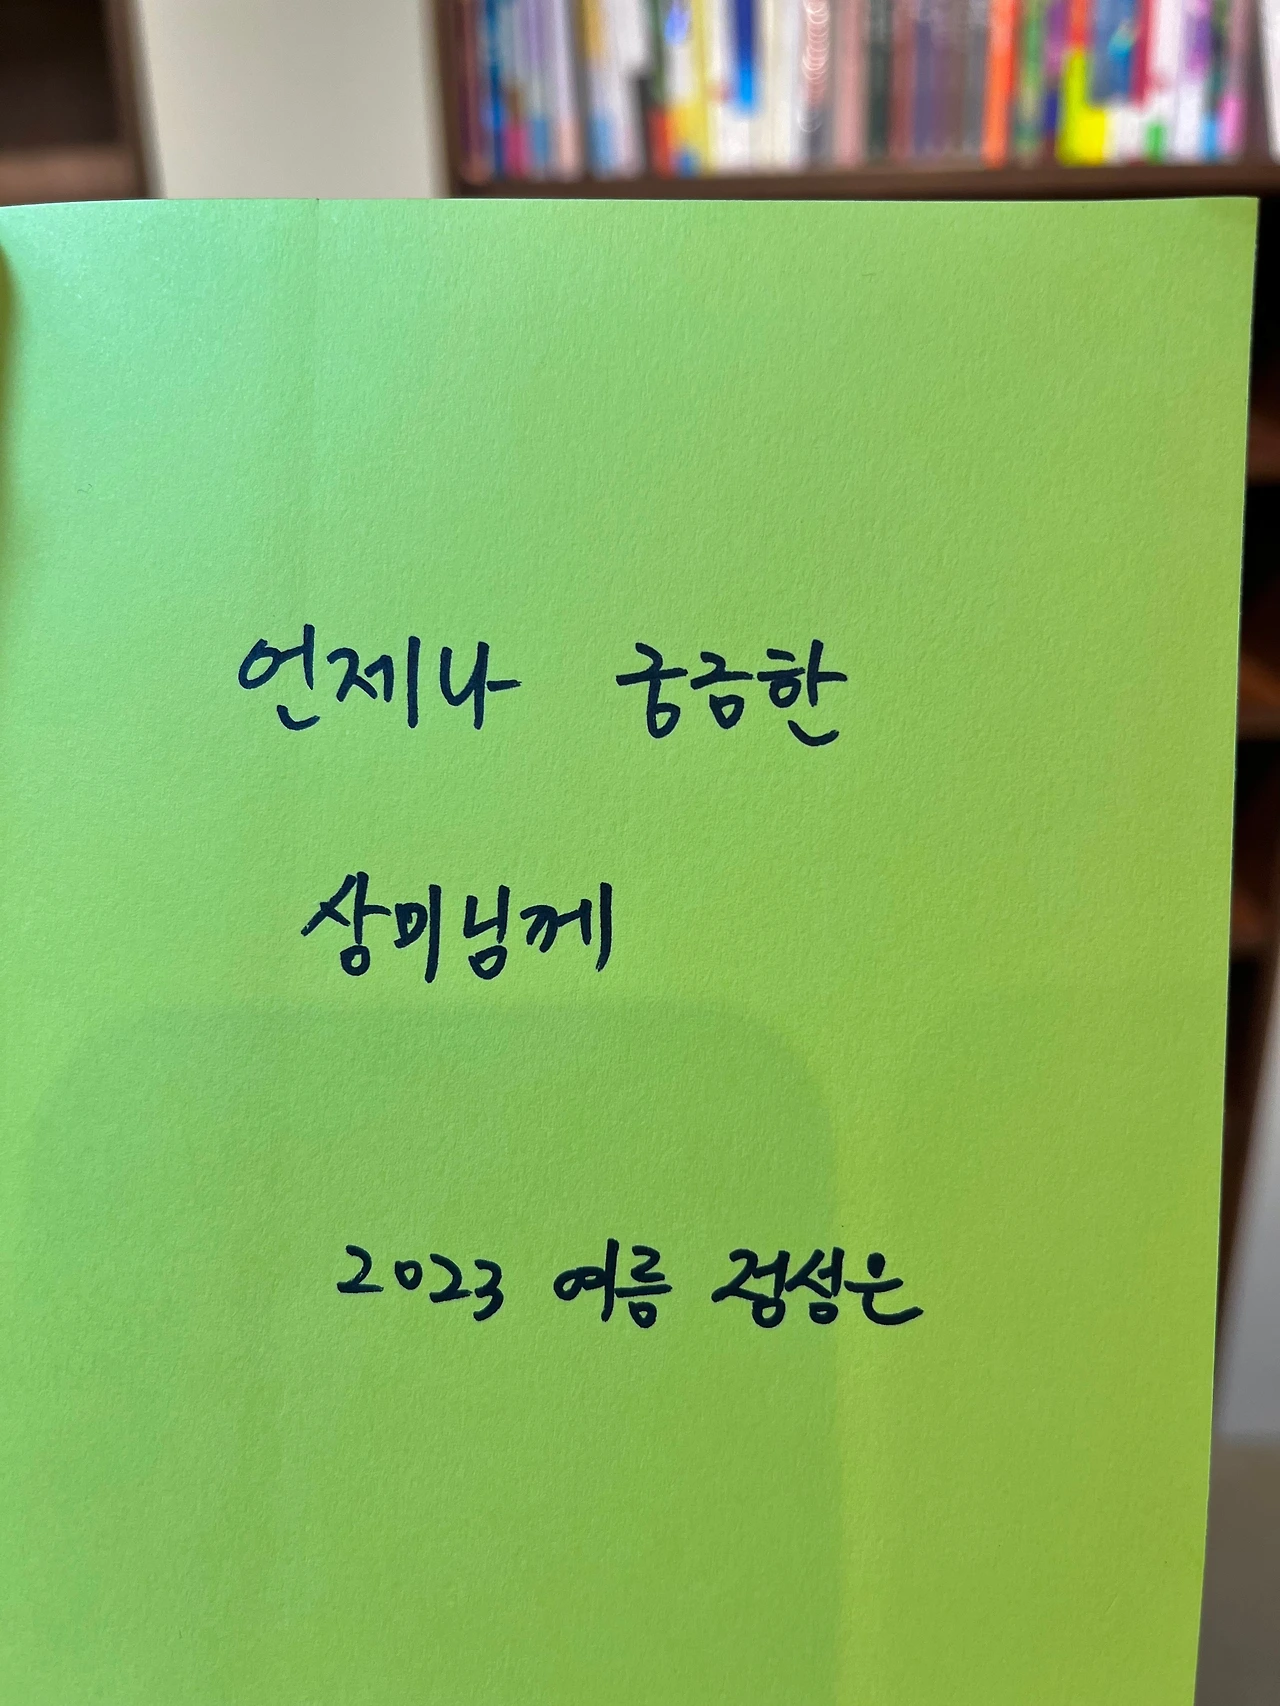 언제나 궁금한
상미님께
2023 여름 정성은